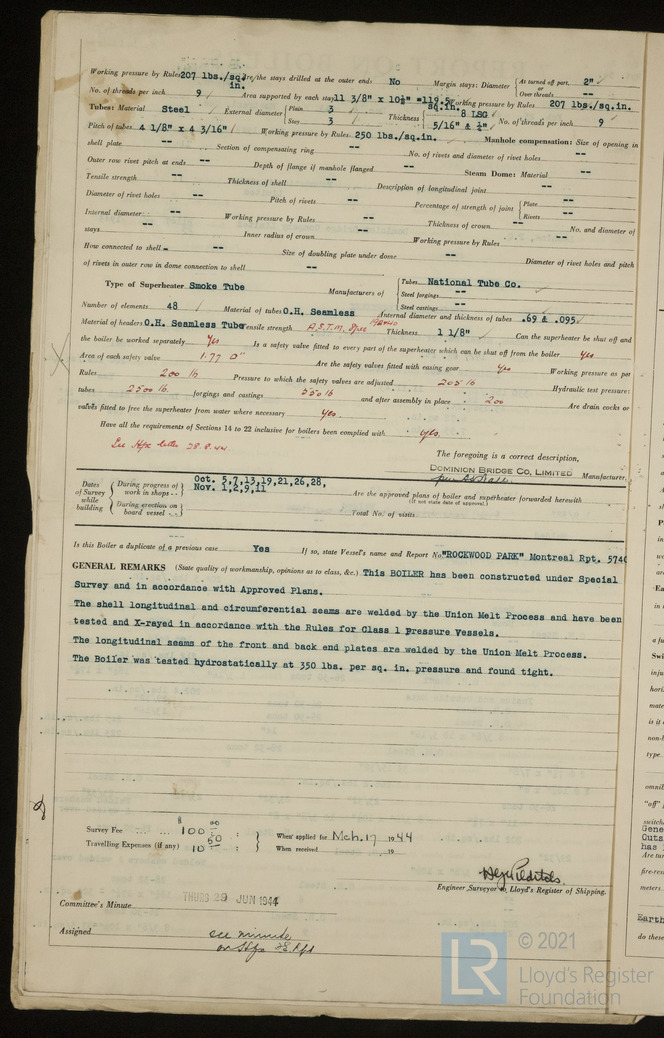 Working pressure by Rules 207 lbs./sq.in. Are the stays drilled at the outer ends No Margin stays: Diameter { At turned off part, 2" or Over threads --
No. of threads per inch 9 Area supported by each stay 11 3/8" x 10½" = 119.5 sq.in. Working pressure by Rules 207 lbs./sq.in.
Tubes: Material Steel External diameter { Plain 3 Stay 3 Thickness { 8 LSG 5/16" & ¼" No. of threads per inch 9
Pitch of tubes 4 1/8" x 4 3/16" Working pressure by Rules 250 lbs./sq.in. Manhole compensation: Size of opening in
shell plate -- Section of compensating ring -- No. of rivets and diameter of rivet holes --
Outer row rivet pitch at ends -- Depth of flange if manhole flanged -- Steam Dome: Material --
Tensile strength -- Thickness of shell -- Description of longitudinal joint --
Diameter of rivet holes -- Pitch of rivets -- Percentage of strength of joint { Plate -- Rivets --
Internal diameter -- Working pressure by Rules -- Thickness of crown -- No. and diameter of
stays -- Inner radius of crown -- Working pressure by Rules --
How connected to shell -- Size of doubling plate under dome -- Diameter of rivet holes and pitch
of rivets in outer row in dome connection to shell --
Type of Superheater Smoke Tube Manufacturers of { Tubes National Tube Co. Steel forgings -- Steel castings --
Number of elements 48 Material of tubes O.H. Seamless Internal diameter and thickness of tubes .69 & .095
Material of headers O.H. Seamless Tube Tensile strength A.S.T.M. Spec Thickness 1 1/8" Can the superheater be shut off and
the boiler be worked separately Yes Is a safety valve fitted to every part of the superheater which can be shut off from the boiler Yes
Area of each safety valve 1.77 □" Are the safety valves fitted with easing gear Yes Working pressure as per
Rules 200 lb Pressure to which the safety valves are adjusted 205 lb Hydraulic test pressure:
tubes 2500 lb. forgings and castings 550 lb and after assembly in place 200 Are drain cocks or
valves fitted to free the superheater from water where necessary Yes.
Have all the requirements of Sections 14 to 22 inclusive for boilers been complied with Yes.
See Hfx letter 28.8.44
The foregoing is a correct description,
DOMINION BRIDGE CO., LIMITED Manufacturer.
Dates of Survey while building { During progress of work in shops - - Oct. 5,7,13,19,21,26,28, Nov. 1,2,9,11
Are the approved plans of boiler and superheater forwarded herewith (If not state date of approval.)
During erection on board vessel - - - Total No. of visits
Is this Boiler a duplicate of a previous case Yes If so, state Vessel's name and Report No. "ROCKWOOD PARK" Montreal Rpt. 5740
GENERAL REMARKS (State quality of workmanship, opinions as to class, &c.) This BOILER has been constructed under Special
Survey and in accordance with Approved Plans.
The shell longitudinal and circumferential seams are welded by the Union Melt Process and have been
tested and X-rayed in accordance with the Rules for Class 1 Pressure Vessels.
The longitudinal seams of the front and back end plates are welded by the Union Melt Process.
The Boiler was tested hydrostatically at 350 lbs. per sq. in. pressure and found tight.
Survey Fee ... ... $ 100 00 : } When applied for Mch. 17 1944
Travelling Expenses (if any) 10 50 : } When received 19
Engineer Surveyor to Lloyd's Register of Shipping.
Committee's Minute THURS 29 JUN 1944
Assigned see minute
on Hfx
LR © 2021
Lloyd's Register
Foundation